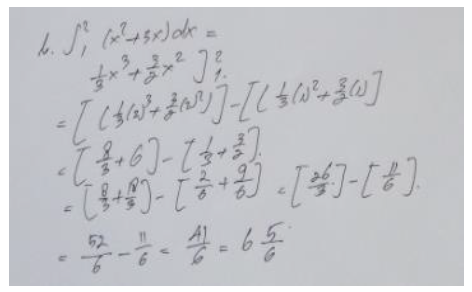 b. ∫₁² (x²+3x)dx =
⅓x³ + 3/2 x² ]₁².
= [ (⅓(2)³ + 3/2(2)²) ] - [ (⅓(1)² + 3/2(1) ]
= [ 8/3 + 6 ] - [ 1/3 + 3/2 ].
= [ 8/3 + 18/3 ] - [ 2/6 + 9/6 ] = [ 26/3 ] - [ 11/6 ].
= 52/6 - 11/6 = 41/6 = 6 5/6